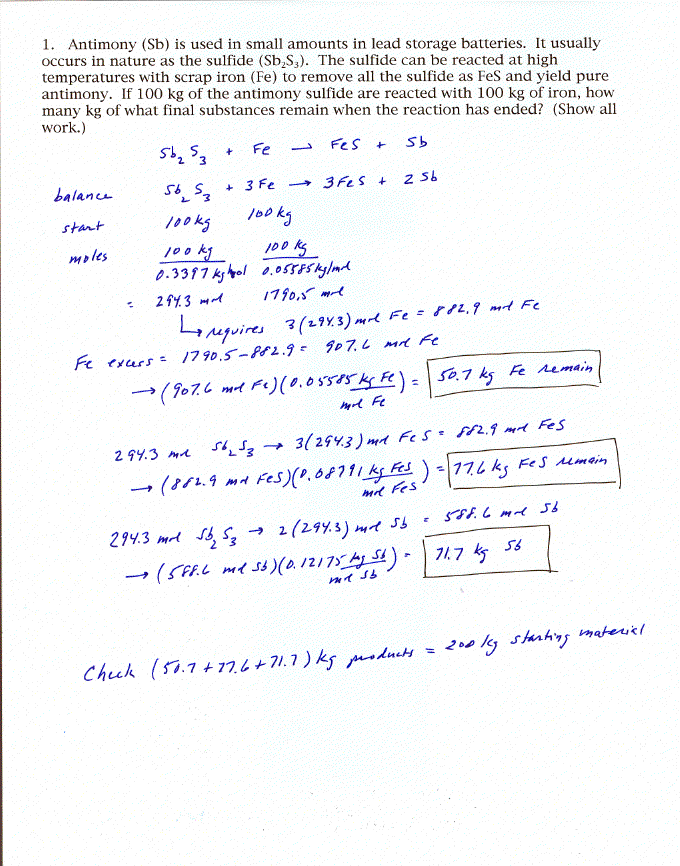 1. Antimony (Sb) is used in small amounts in lead storage batteries. It usually
occurs in nature as the sulfide (Sb₂S₃). The sulfide can be reacted at high
temperatures with scrap iron (Fe) to remove all the sulfide as FeS and yield pure
antimony. If 100 kg of the antimony sulfide are reacted with 100 kg of iron, how
many kg of what final substances remain when the reaction has ended? (Show all
work.)
Sb₂S₃ + Fe → FeS + Sb
balance Sb₂S₃ + 3Fe → 3FeS + 2Sb
start 100kg 100kg
moles 100 kg 100 kg
0.3397 kg/mol 0.05585 kg/mol
= 294.3 mol 1790.5 mol
↳ requires 3(294.3) mol Fe = 882.9 mol Fe
Fe excess = 1790.5-882.9 = 907.6 mol Fe
→ (907.6 mol Fe)(0.05585 kg Fe / mol Fe) = 50.7 kg Fe remain
294.3 mol Sb₂S₃ → 3(294.3) mol FeS = 882.9 mol FeS
→ (882.9 mol FeS)(0.08791 kg FeS / mol FeS) = 77.6 kg FeS remain
294.3 mol Sb₂S₃ → 2(294.3) mol Sb = 588.6 mol Sb
→ (588.6 mol Sb)(0.12175 kg Sb / mol Sb) = 71.7 kg Sb
Check (50.7+77.6+71.7) kg products = 200 kg starting material